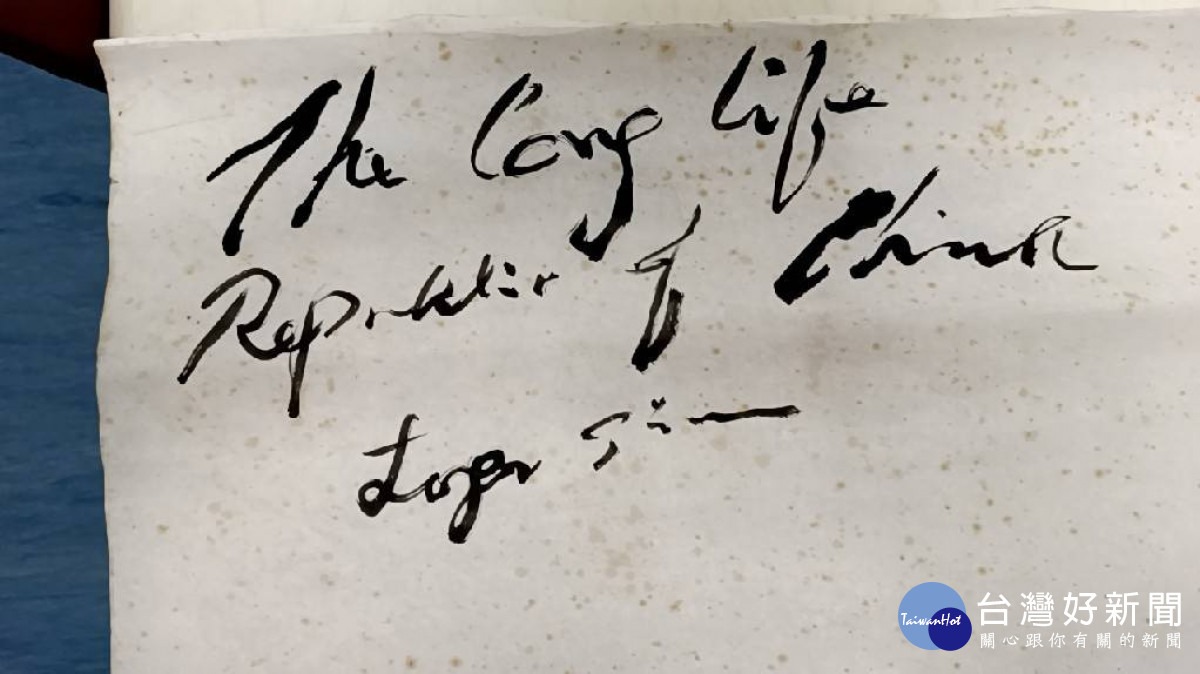 The Long Life
Republic of China
TaiwanHot
台灣好新聞
關心跟你有關的新聞